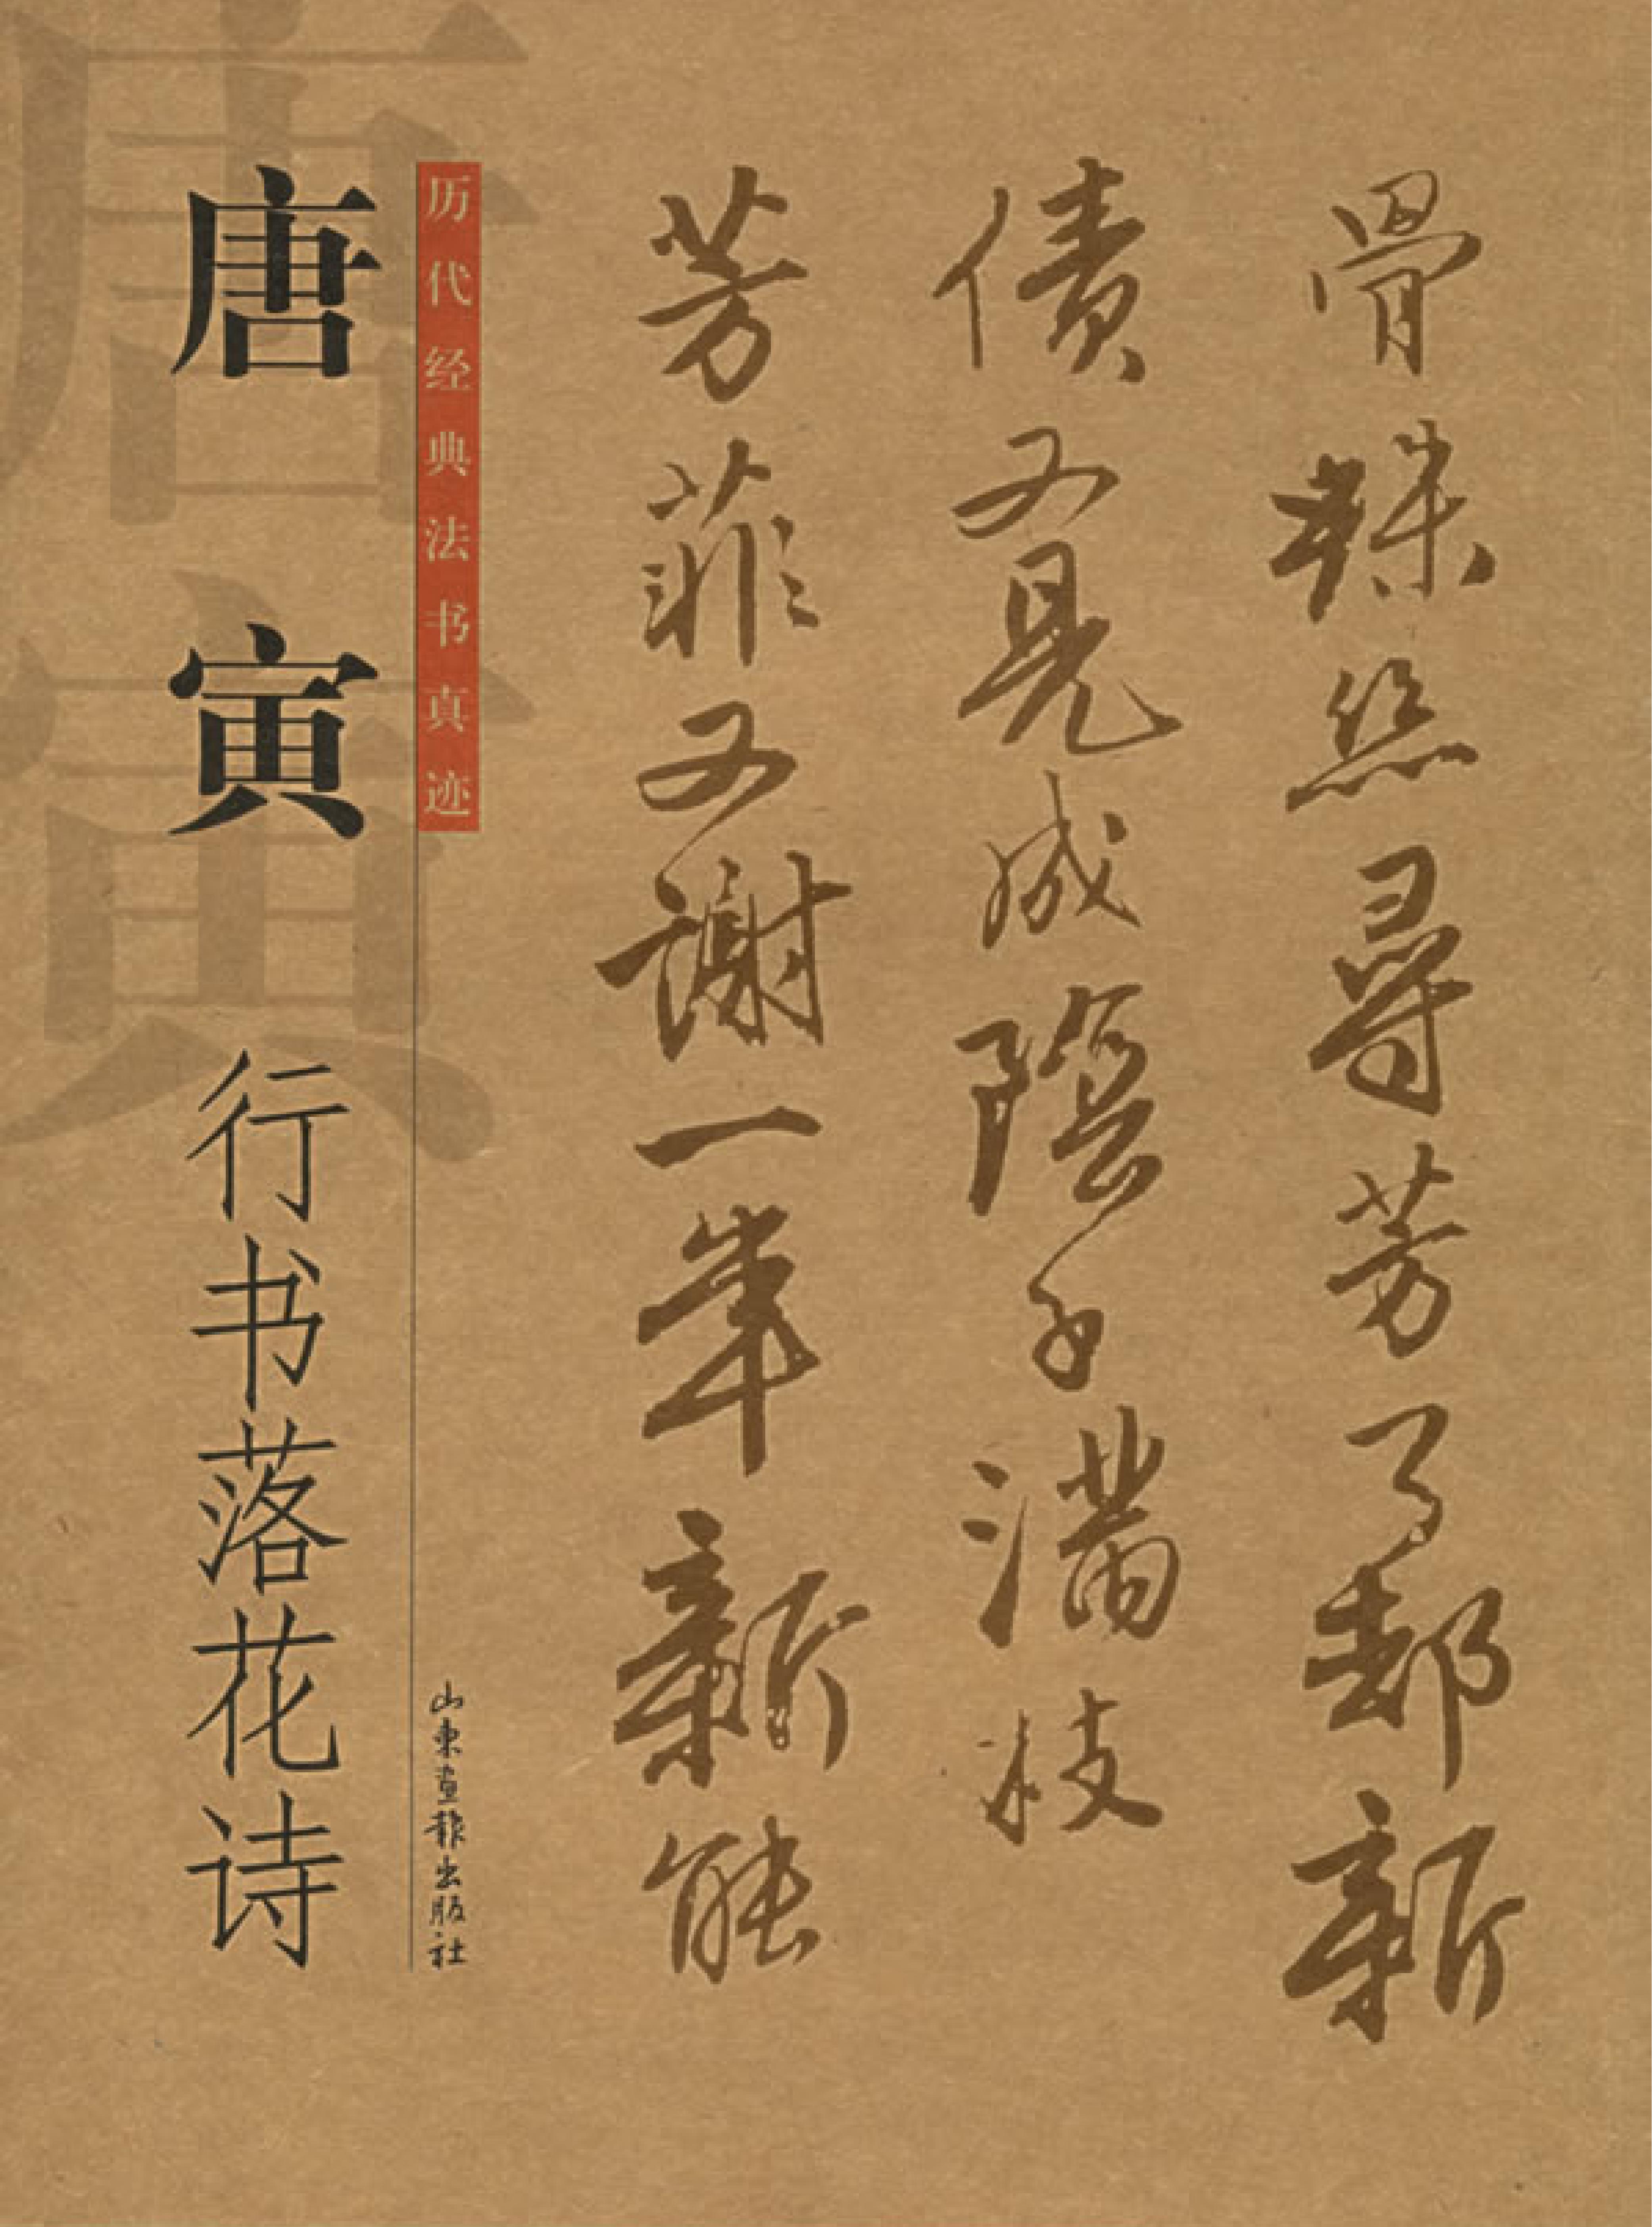 罥蛛絲尋芳了却新
債又見成陰子滿枝
芳菲又謝一年新能
历代经典法书真迹
唐寅 行书落花诗
山東画報出版社
唐寅